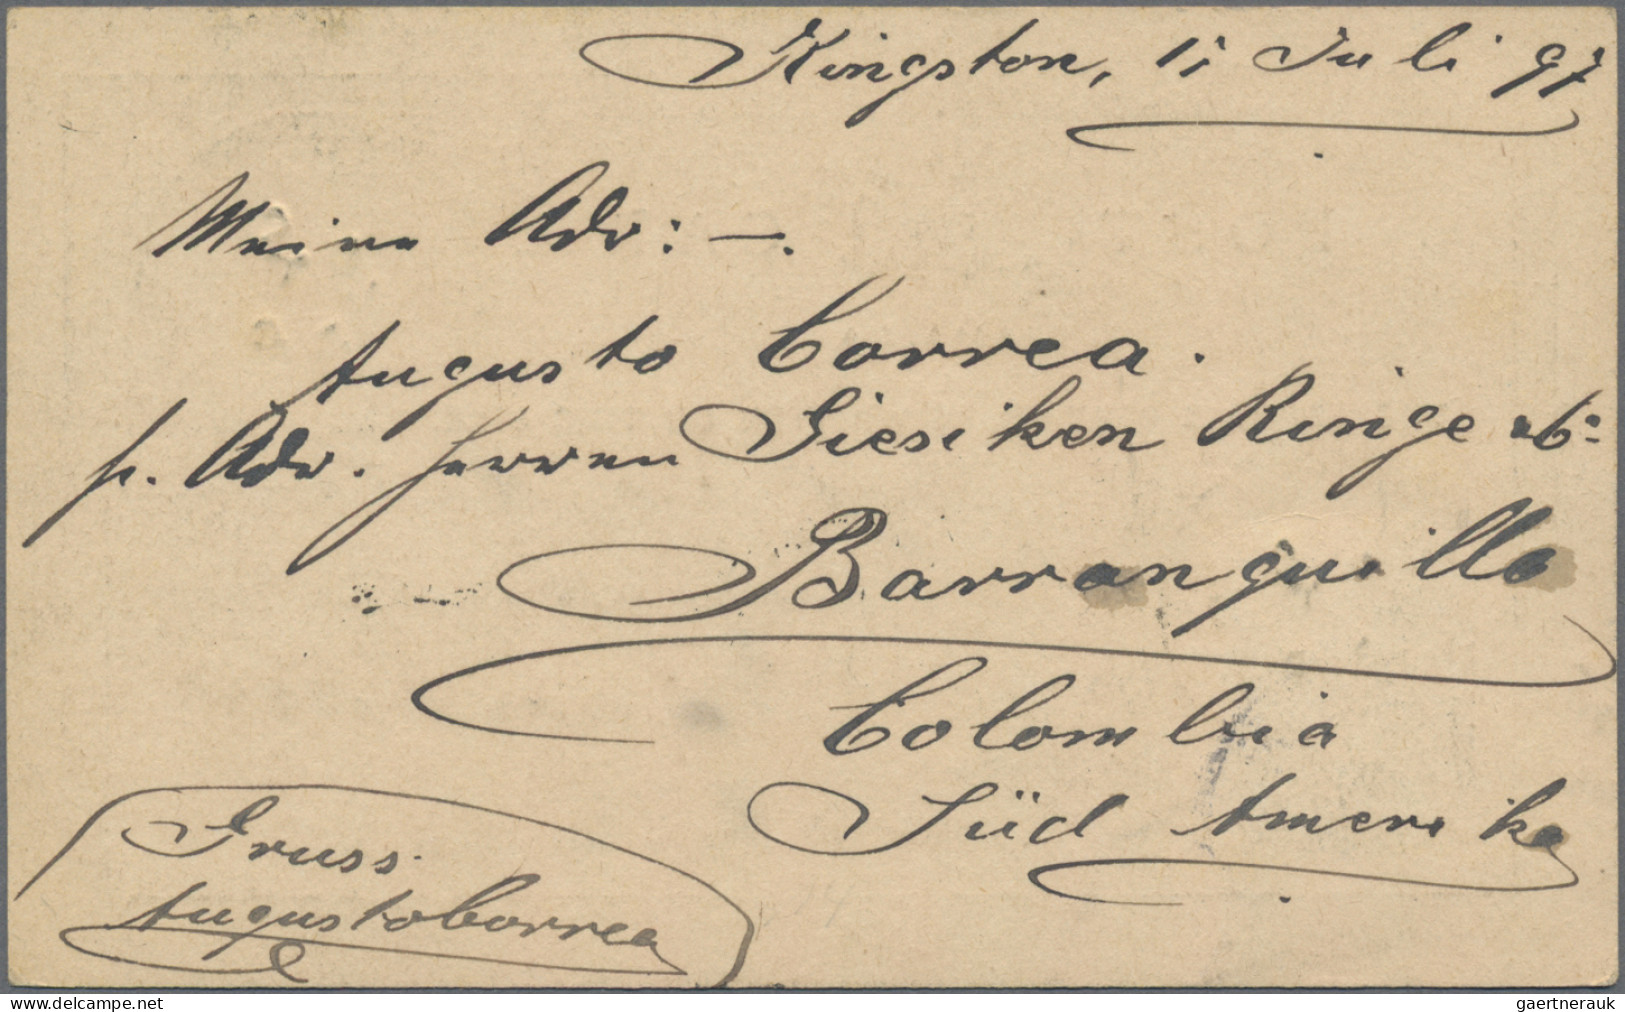 Kingston, 11 Juli 97
Meine Adr: —.
Augusto Correa.
p. Adr. Herren Siesiken Ringe &
Barranquilla
Colombia
Süd Amerika
Gruss
Augusto Correa
delcampe.net
gaertnerauk